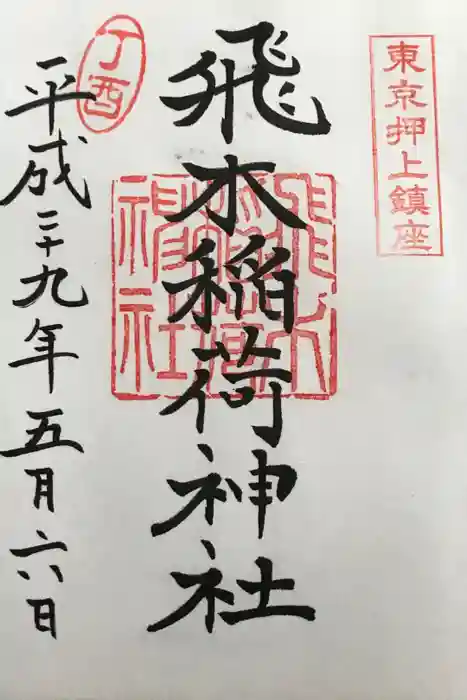 東京押上鎮座
飛木稲荷神社
飛木稲荷神社
丁酉
平成二十九年五月六日